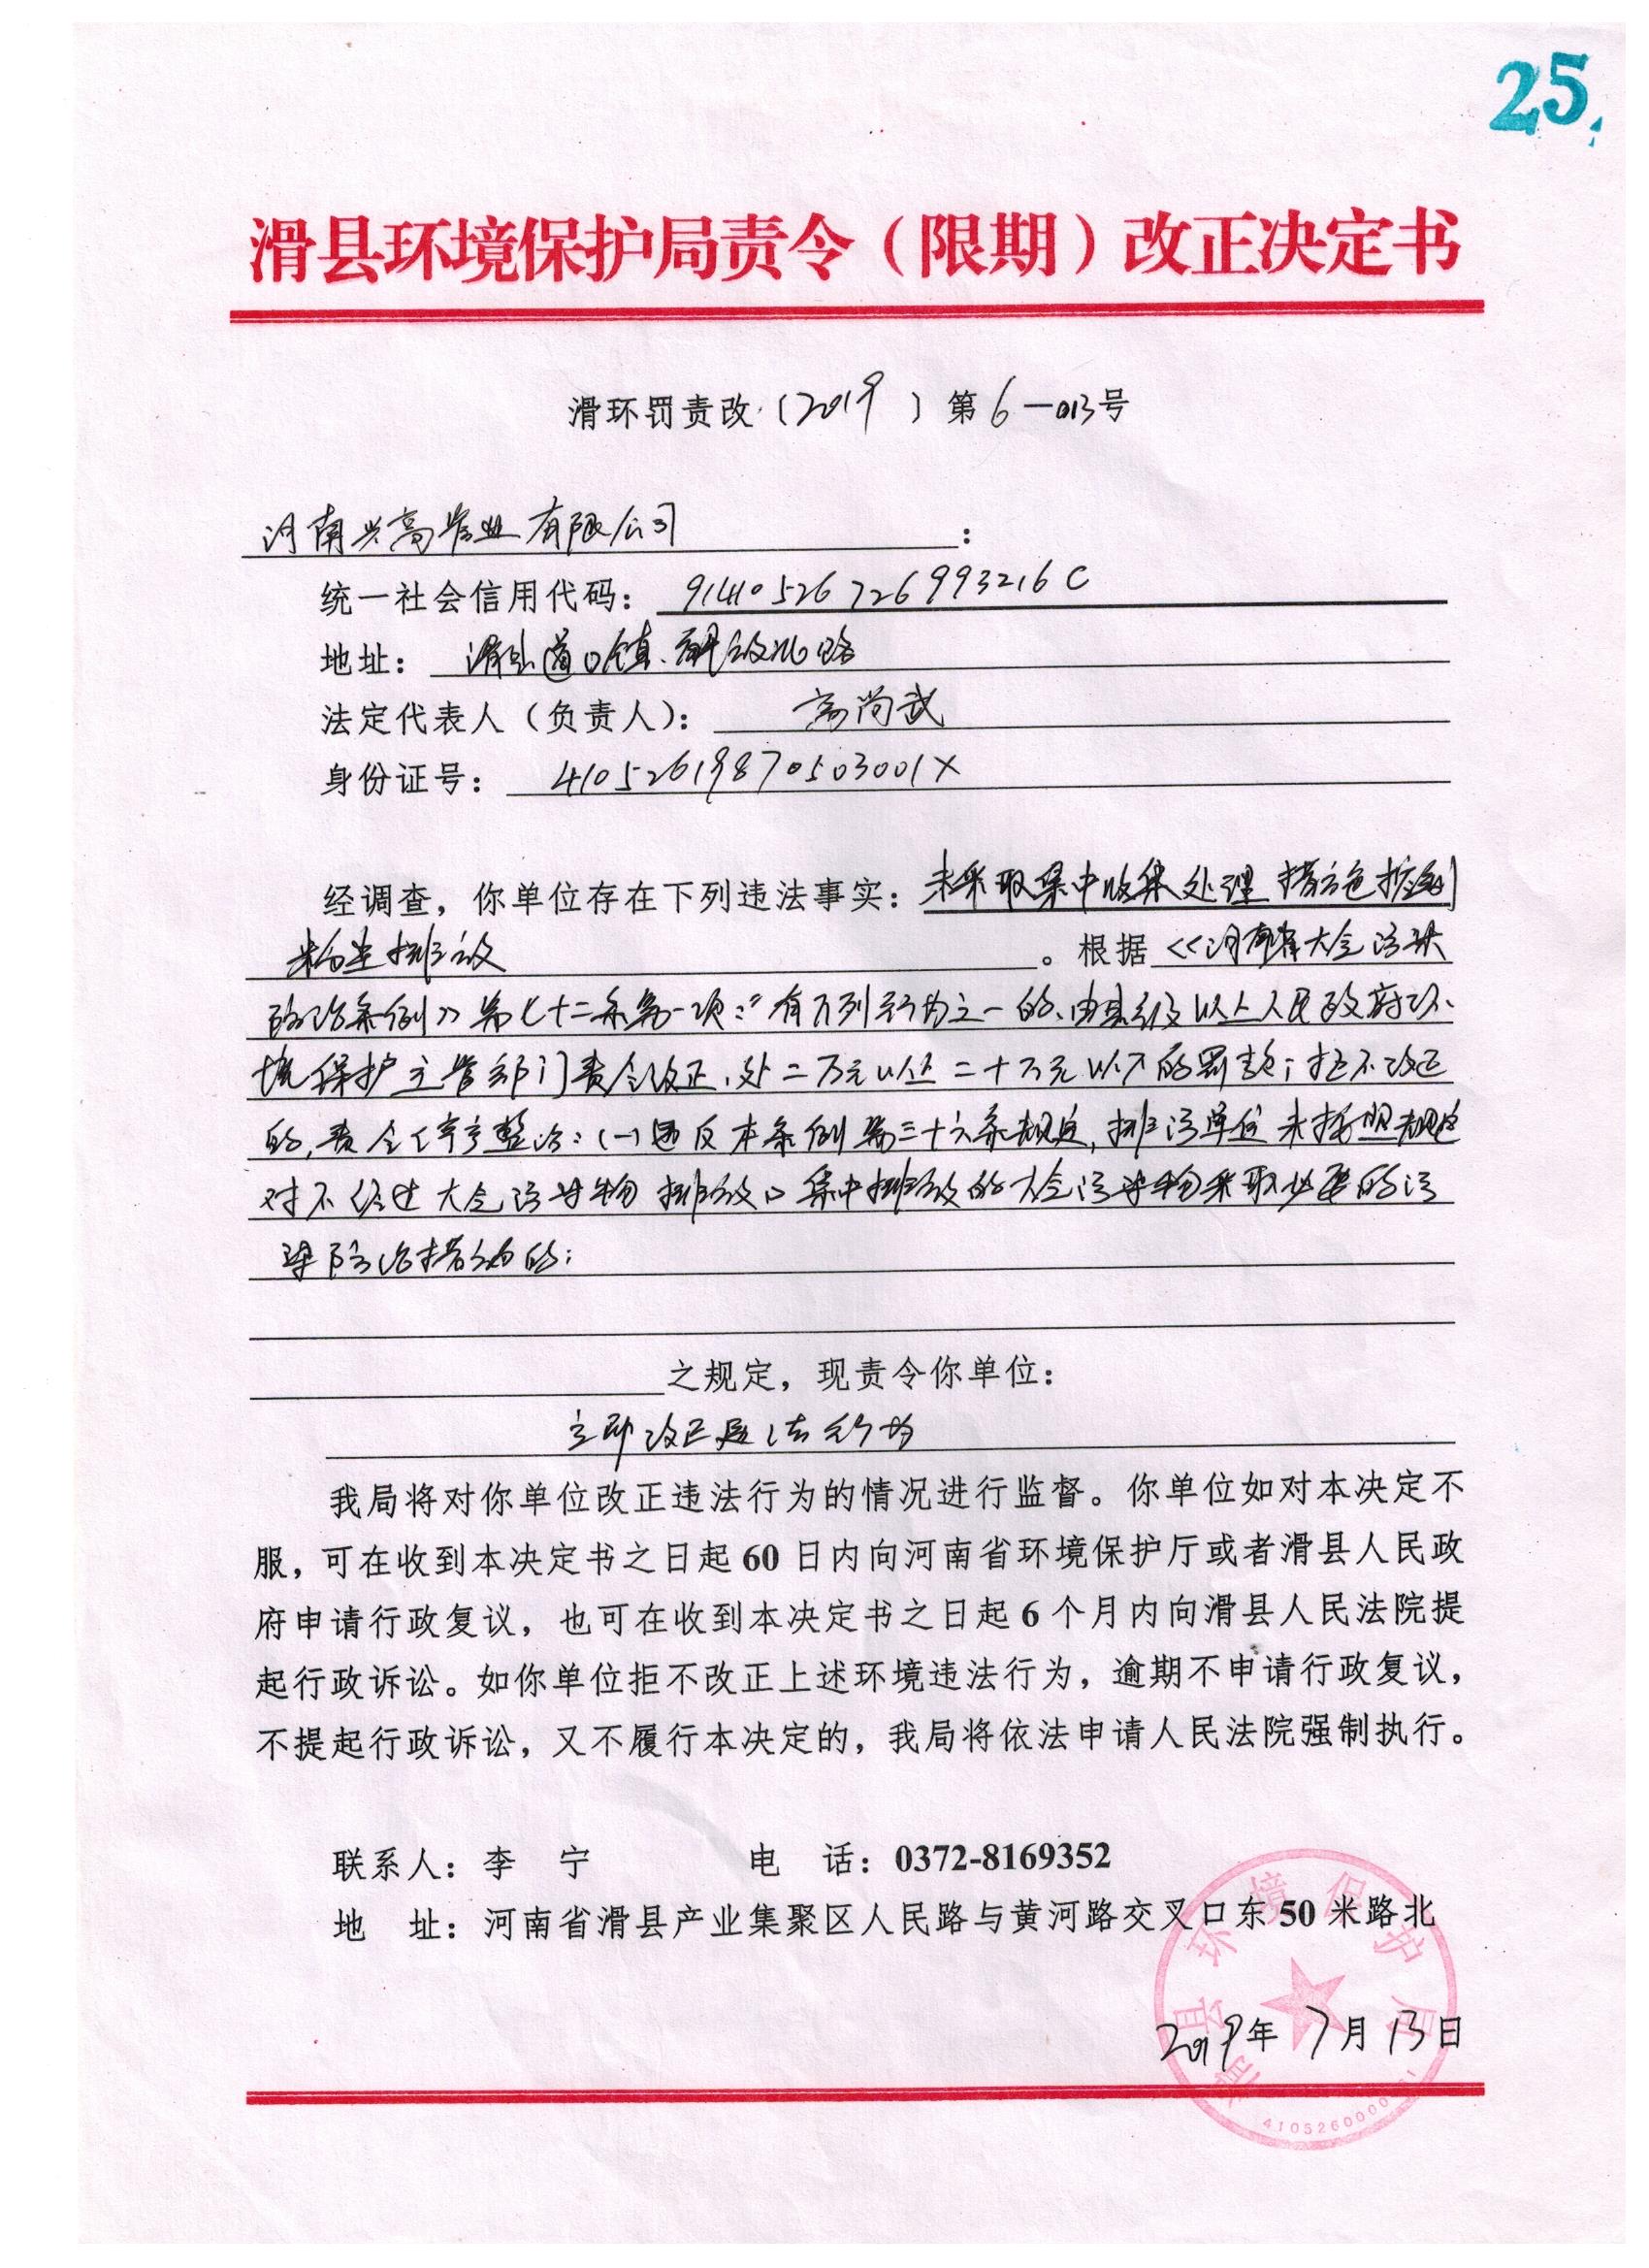 25
滑县环境保护局责令（限期）改正决定书
滑环罚责改〔2019〕第6-013号
河南兴高岩业有限公司：
统一社会信用代码：91410526726993216C
地址：滑县道口镇、解放北路
法定代表人（负责人）：高尚武
身份证号：41052619870503001X
经调查，你单位存在下列违法事实：未采取集中收集处理措施控制
粉尘排放。根据《河南省大气污染
防治条例》第七十二条第一项：“有下列行为之一的、由县级以上人民政府环
境保护主管部门责令改正、处二万元以上二十万元以下的罚款；拒不改正
的，责令停产整治：（一）违反本条例第三十六条规定，排污单位未按照规定
对不经过大气污染物排放口集中排放的大气污染物采取必要的污
染防治措施的；
之规定，现责令你单位：
立即改正违法行为
我局将对你单位改正违法行为的情况进行监督。你单位如对本决定不
服，可在收到本决定书之日起60日内向河南省环境保护厅或者滑县人民政
府申请行政复议，也可在收到本决定书之日起6个月内向滑县人民法院提
起行政诉讼。如你单位拒不改正上述环境违法行为，逾期不申请行政复议，
不提起行政诉讼，又不履行本决定的，我局将依法申请人民法院强制执行。
联系人：李 宁 电 话：0372-8169352
地 址：河南省滑县产业集聚区人民路与黄河路交叉口东50米路北
滑县环境保护局
2019年7月13日